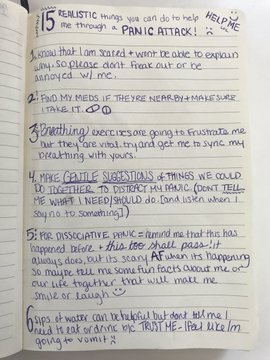 15 REALISTIC things you can do to help HELP ME
me through a PANIC ATTACK!
1. Know that I am scared + wont be able to explain
why, so please dont freak out or be
annoyed w/ me.
2. FIND MY MEDS IF THEYRE NEARBY + MAKE SURE
I TAKE IT.
3. Breathing exercises are going to frustrate me
but they are vital. try and get me to sync my
breathing with yours.
4. MAKE GENTLE SUGGESTIONS OF THINGS WE COULD
DO TOGETHER TO DISTRACT MY PANIC. (DONT TELL
ME WHAT I NEED/SHOULD DO. [and listen when I
say no to something])
5. FOR DISSOCIATIVE PANIC = remind me that this has
happened before + this too shall pass! it
always does, but its scary AF when its happening
so maybe tell me some fun facts about me or
our life together that will make me
smile or laugh
6 sips of water can be helpful but dont tell me I
need to eat or drink b/c TRUST ME - I feel like Im
going to vomit